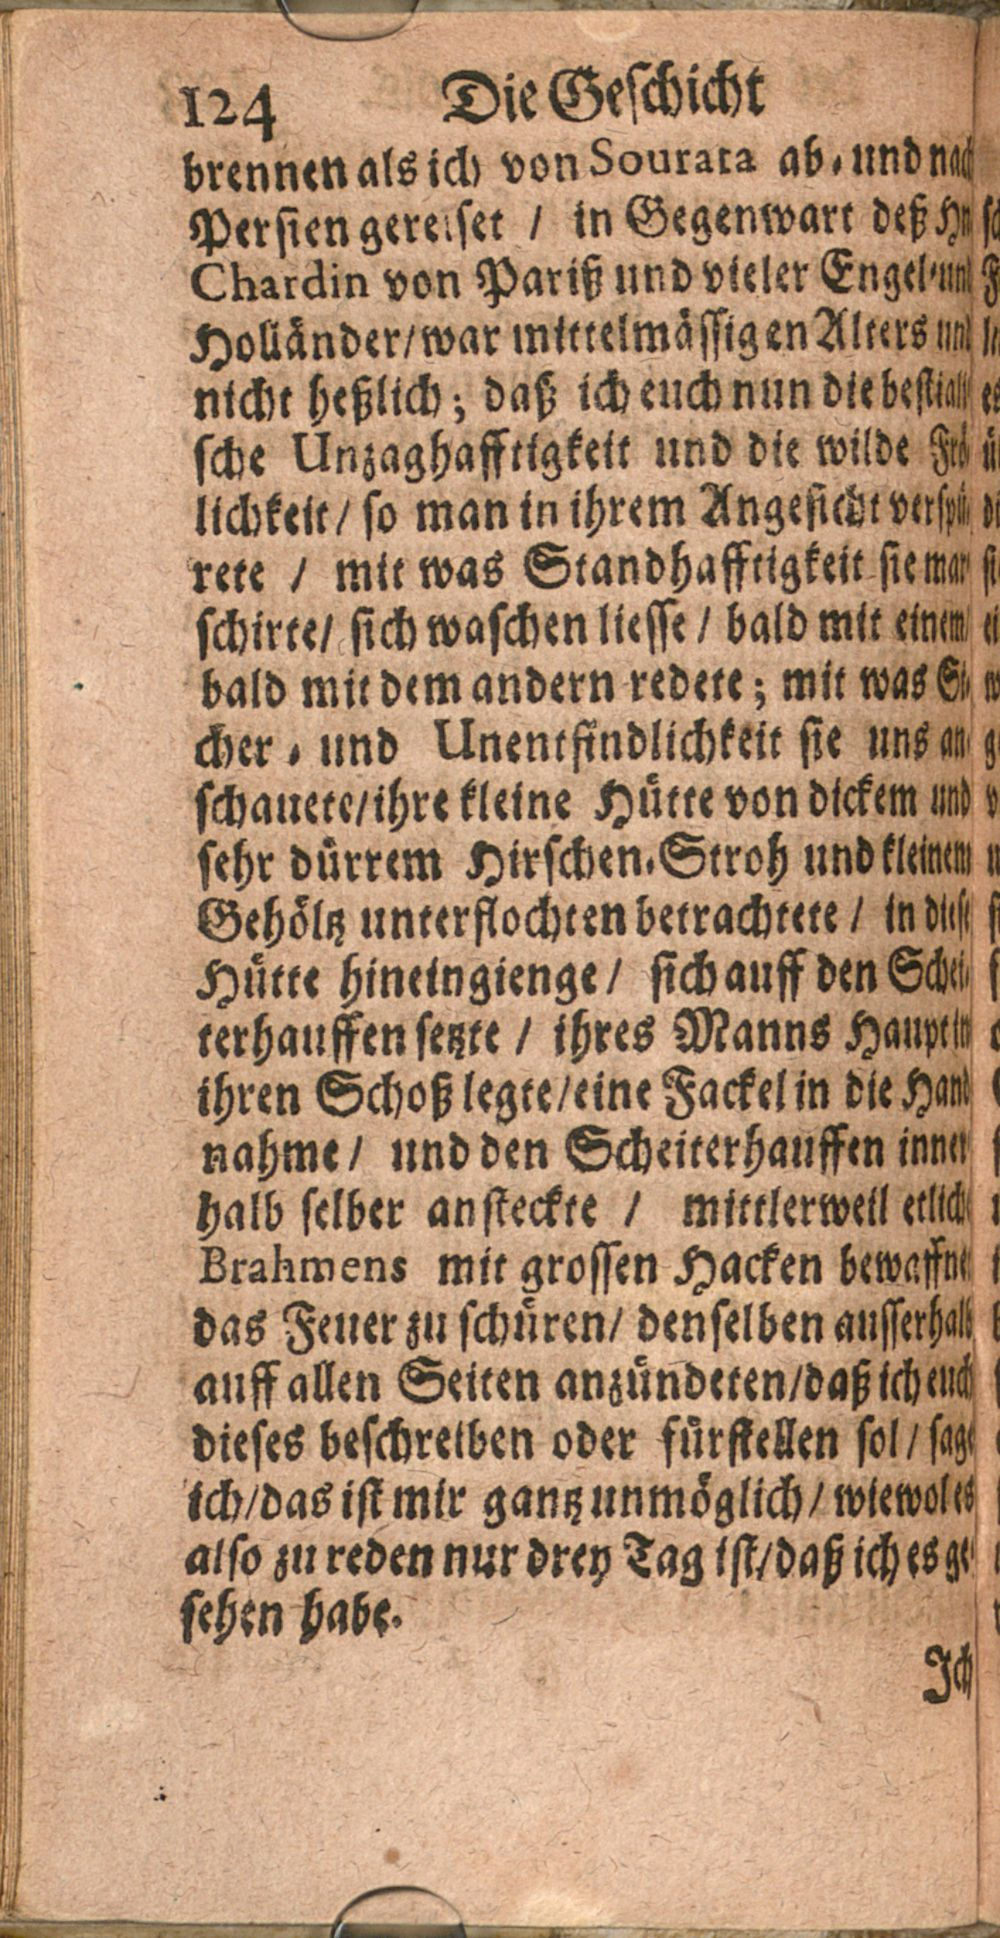 124 Die Geschicht
brennen als ich von Sourata ab- und nach
Persien gereiset / in Gegenwart deß Hn
Chardin von Pariß und vieler Engel-und
Holländer/war mittelmässigen Alters und
nicht heßlich; daß ich euch nun die bestiali
sche Unzaghafftigkeit und die wilde Frö
lichkeit/ so man in ihrem Angesicht verspü
rete / mit was Standhafftigkeit sie mar
schirte/ sich waschen liesse / bald mit einem/
bald mit dem andern redete; mit was Si
cher- und Unentfindlichkeit sie uns an
schauete/ihre kleine Hütte von dickem und
sehr dürrem Hirschen-Stroh und kleinem
Gehöltz unterflochten betrachtete / in diese
Hütte hineingienge/ sich auff den Schei
terhauffen setzte / ihres Manns Haupt in
ihren Schoß legte/eine Fackel in die Hand
nahme/ und den Scheiterhauffen inner
halb selber ansteckte / mittlerweil etliche
Brahmens mit grossen Hacken bewaffnet
das Feuer zu schüren/ denselben ausserhalb
auff allen Seiten anzündeten/daß ich euch
dieses beschreiben oder fürstellen sol/ sage
ich/das ist mir gantz unmöglich/ wiewol es
also zu reden nur drey Tag ist/daß ich es ge
sehen habe.
Ich